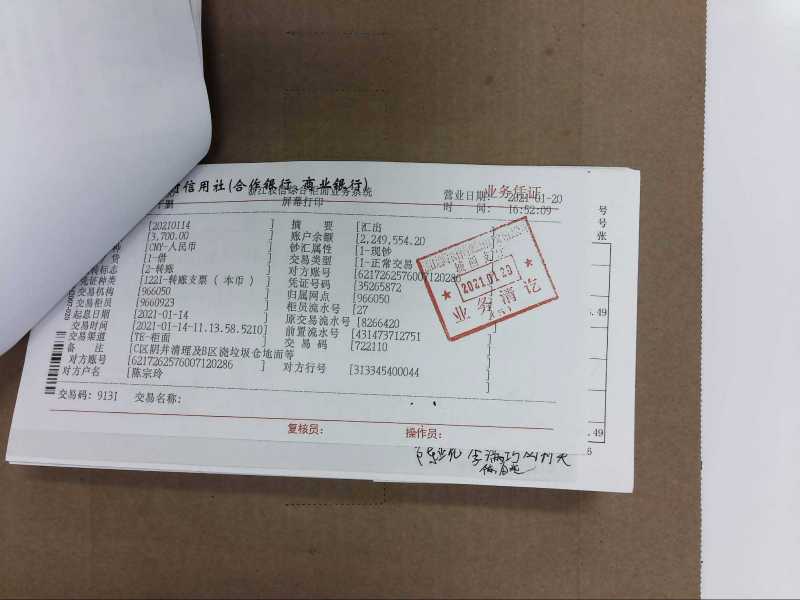 信用社(合作银行 商业银行) 业务凭证
柜面业务系统 营业日期: 2021-01-20
屏幕打印 时 间: 16:52:09
[20210114 ] 摘 要 [汇出
[3,700.00 ] 账户余额 [2,249,554.20
种 [CNY-人民币 ] 钞汇属性 [1-现钞
贷 [1-借 ] 交易类型 [1-正常交易
转标志 [2-转账 ] 对方账号 [6217262576007120286
凭证种类 [1221-转账支票(本币) ] 凭证号码 [35265872
交易机构 [966050 ] 归属网点 [966050
交易柜员 [9660923 ] 柜员流水号 [27
起息日期 [2021-01-14 ] 原交易流水号 [8266420
交易时间 [2021-01-14-11.13.58.5210] 前置流水号 [431473712751
交易渠道 [TE-柜面 ] 交 易 码 [722110
备 注 [C区阴井清理及B区浇垃圾仓地面等 ]
对方账号 [6217262576007120286 ] 对方行号 [313345400044 ]
对方户名 [陈宗玲 ]
交易码: 9131 交易名称:
复核员: 操作员:
2021.01.20
业务清讫
号
号
张
.49
.49